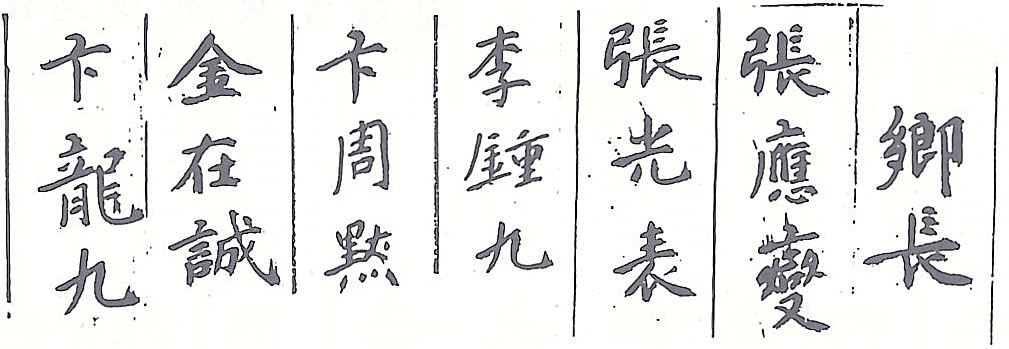 鄉長
張應變
張光表
李鍾九
卞周㸃
金在誠
卞龍九